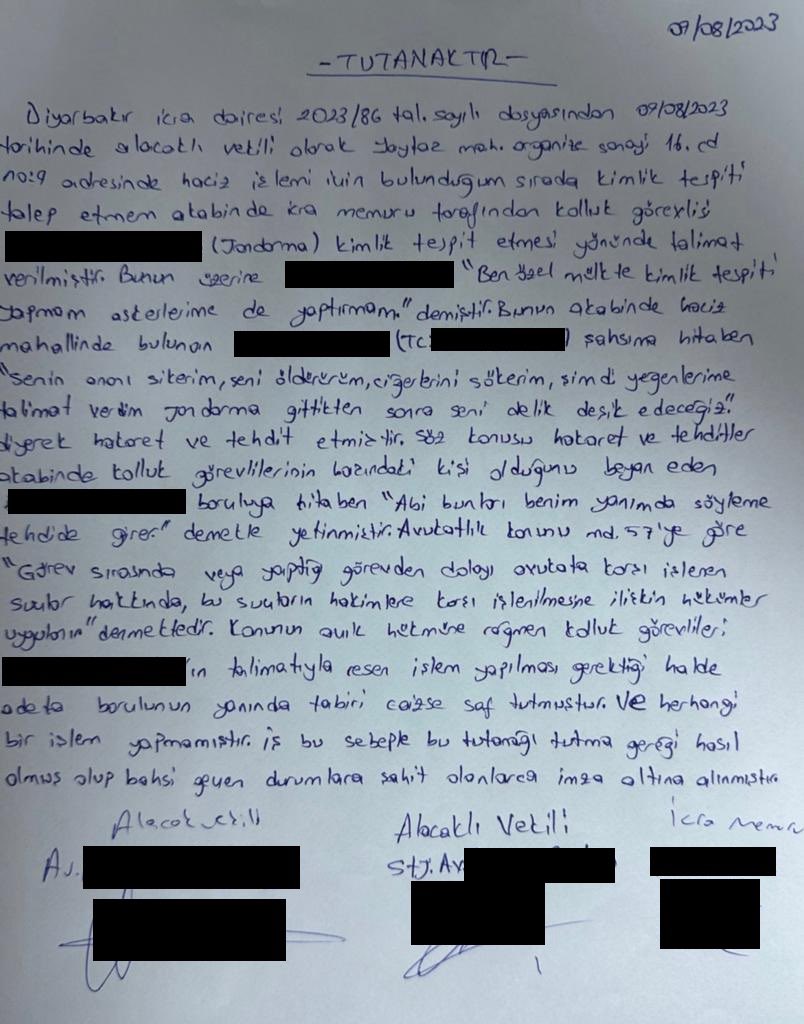 09/08/2023
-TUTANAKTIR-
Diyarbakır icra dairesi 2023/86 tal. sayılı dosyasından 09/08/2023
tarihinde alacaklı vekili olarak Yaytaz mah. organize sanayi 16. cd
no:9 adresinde haciz işlemi için bulunduğum sırada kimlik tespiti
talep etmem akabinde icra memuru tarafından kolluk görevlisi
(Jandarma) kimlik tespit etmesi yönünde talimat
verilmiştir. Bunun üzerine "Ben özel mülkte kimlik tespiti
yapmam askerlerime de yaptırmam." demiştir. Bunun akabinde haciz
mahallinde bulunan (TC: ) şahsıma hitaben
"senin ananı sikerim, seni öldürürüm, ciğerlerini sökerim, şimdi yeğenlerime
talimat verdim Jandarma gittikten sonra seni delik deşik edeceğiz."
diyerek hakaret ve tehdit etmiştir. Söz konusu hakaret ve tehditler
akabinde kolluk görevlilerinin bazındaki kişi olduğunu beyan eden
boruluya hitaben "Abi bunları benim yanımda söyleme
tehdide girer." demekle yetinmiştir. Avukatlık kanunu md. 57'ye göre
"Görev sırasında veya yaptığı görevden dolayı avukata karşı işlenen
suçlar hakkında, bu suçların hakimlere karşı işlenilmesine ilişkin hükümler
uygulanır" denmektedir. Kanunun açık hükmüne rağmen kolluk görevlileri
'ın talimatıyla resen işlem yapılması gerektiği halde
adeta borulunun yanında tabiri caizse saf tutmuştur. Ve herhangi
bir işlem yapmamıştır. iş bu sebeple bu tutanağı tutma gereği hasıl
olmuş olup bahsi geçen durumlara şahit olanlarca imza altına alınmıştır.
Alacak vekili Alacaklı Vekili İcra Memuru
Av. Stj. Av.